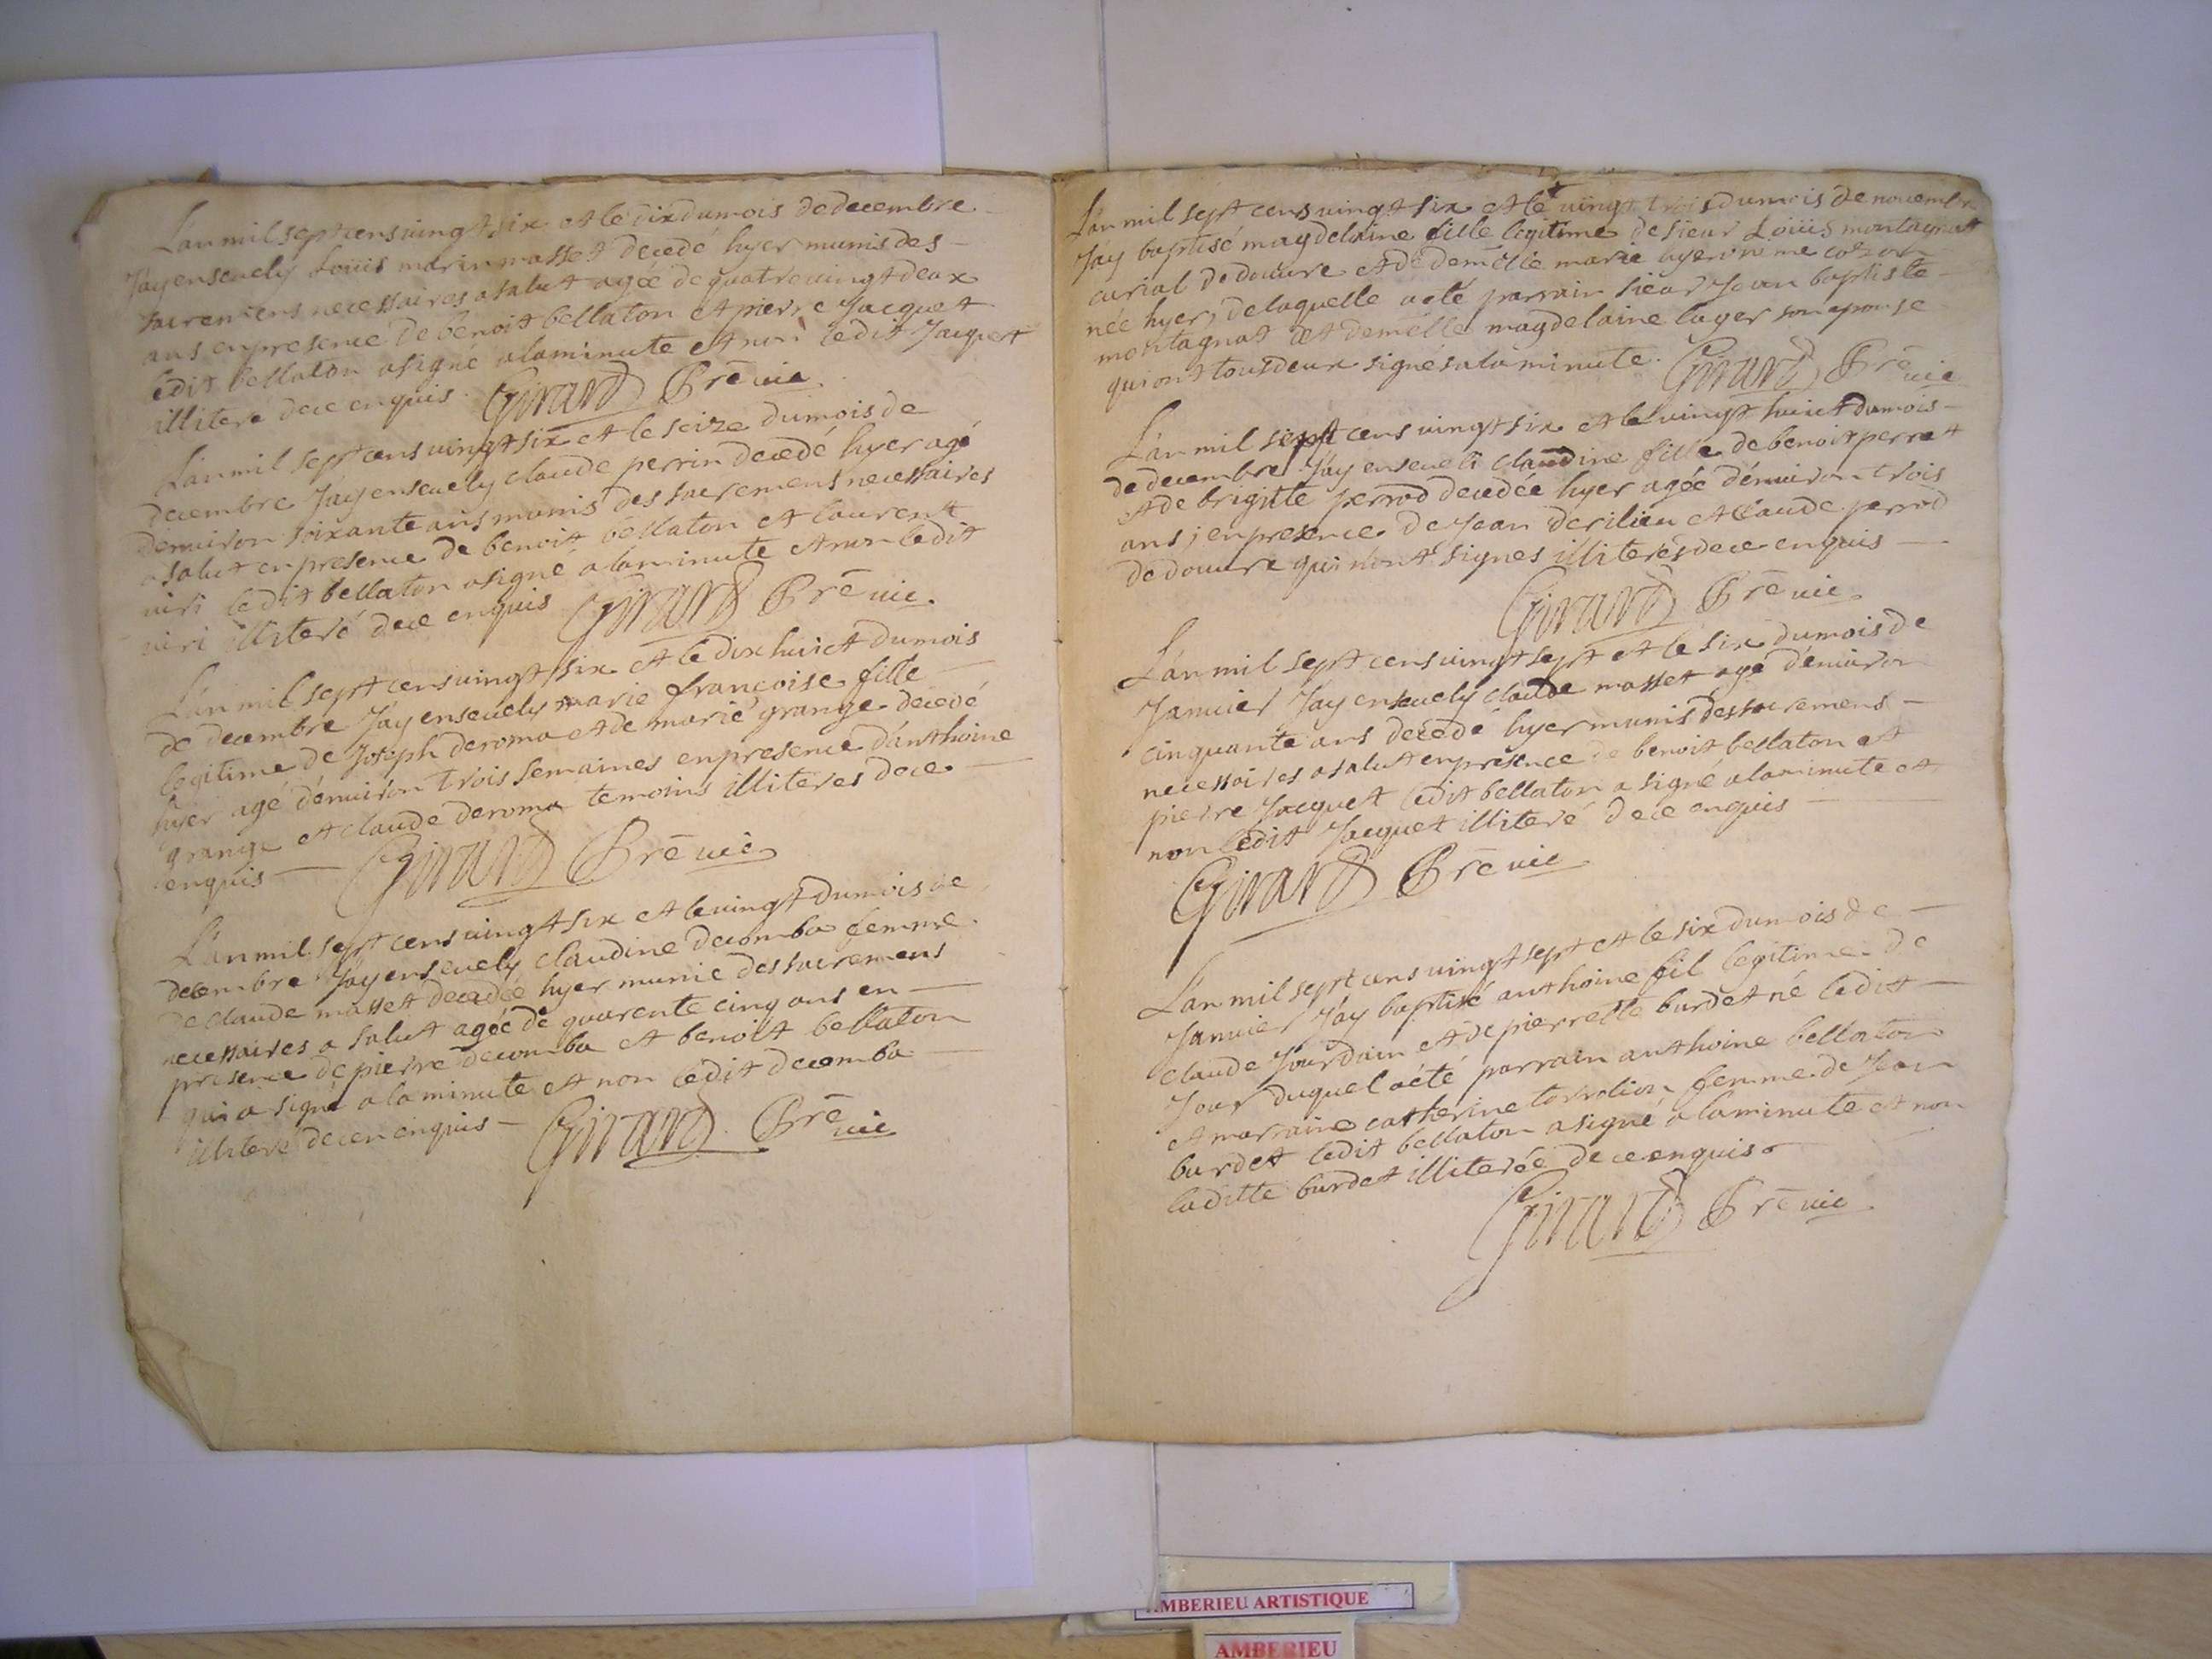 L'an mil sept cens vingt six et le dix du mois de decembre
J'ay ensevely Loüis marin masset decedé hyer munis des
sacremens necessaires a salut agée de quatre vingt deux
ans en presence de benoit bellaton et pierre Jacquet
ledit bellaton a signé a la minute et non ledit Jacquet
illiteré de ce enquis. Girard Prē vic.
L'an mil sept cens vingt six et le seize du mois de
decembre J'ay ensevely claude perrin decedé hyer agé
d'environ soixante ans munis des sacremens necessaires
a salut en presence de benoit bellaton et laurent
viri ledit bellaton a signé a la minute et non ledit
viri illiteré de ce enquis Girard Prē vic.
L'an mil sept cens vingt six et le dix huict du mois
de decembre J'ay ensevely marie françoise fille
legitime de Joseph deroma et de marie grange decedé
hyer agé d'environ trois semaines en presence d'anthoine
grange et claude deroma temoins illiteres de ce
enquis Girard Prē vic.
L'an mil sept cens vingt six et le vingt du mois de
decembre J'ay ensevely claudine decomba femme
de claude masset decedée hyer munie des sacremens
necessaires a salut agée de quarente cinq ans en
presence de pierre decomba et benoit bellaton
qui a signé a la minute et non ledit decomba
illiteré de ce en enquis Girard. Prē vic
L'an mil sept cens vingt six et le vingt trois du mois de novembre
J'ay baptisé magdelaine fille legitime de sieur Loüis montagnat
curial de douvre et de demelle marie
née hyer, de laquelle a eté parrain sieur Jean baptiste
montagnat et demelle magdelaine lager son epouse
qui ont tous deux signés a la minute. Girard Prē vic
L'an mil sept cens vingt six et le vingt huict du mois
de decembre J'ay enseveli claudine fille de benoit perret
et de brigitte perrod decedée hyer agée d'environ trois
ans; en presence de Jean derilieu et claude perrod
de douvre qui n'ont signes illiterés de ce enquis
Girard Prē vic.
L'an mil sept cens vingt sept et le six du mois de
Janvier J'ay ensevely claude masset agé d'environ
cinquante ans decedé hyer munis des sacremens
necessaires a salut en presence de benoit bellaton et
pierre Jacquet ledit bellaton a signé a la minute et
non ledit Jacquet illiteré de ce enquis
Girard Prē vic
L'an mil sept cens vingt sept et le six du mois de
Janvier J'ay baptisé anthoine fil legitime de
claude Jourdain et de pierrette burdet né ledit
Jour duquel a eté parrain anthoine bellaton
et marraine catherine femme de Jean
burdet ledit bellaton a signé a la minute et non
laditte burdet illiterée de ce enquis
Girard Prē vic
AMBERIEU ARTISTIQUE
AMBERIEU